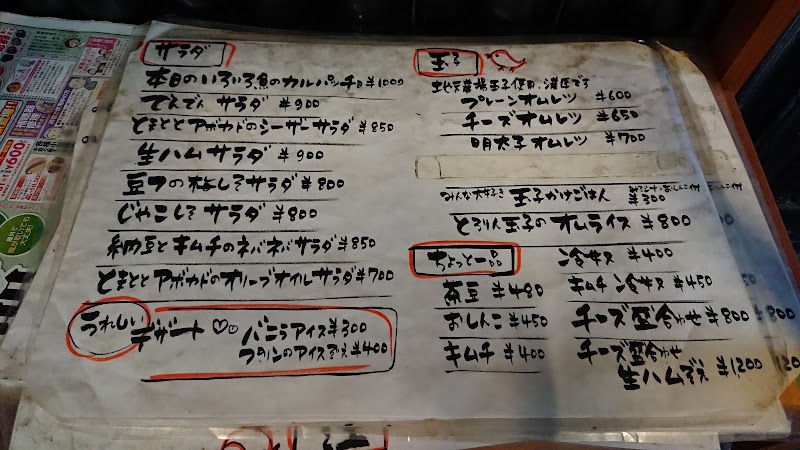 サラダ
本日のいろいろ魚のカルパッチョ ¥1000
でんでん サラダ ¥900
とまととアボカドのシーザーサラダ ¥850
生ハムサラダ ¥900
豆フの梅しそサラダ ¥800
じゃこしそサラダ ¥800
納豆とキムチのネバネバサラダ ¥850
とまととアボカドのオリーブオイルサラダ ¥700
うれしい
デザート
バニラアイス ¥300
プリンのアイスぞえ ¥400
玉子
地元産場玉子使用、濃厚です
プレーンオムレツ ¥600
チーズオムレツ ¥650
明太子オムレツ ¥700
みんな大好き 玉子かけごはん
¥300
とろりん玉子のオムライス ¥800
ちょっと一品
茶豆 ¥480
おしんこ ¥450
キムチ ¥400
冷奴 ¥400
キムチ冷奴 ¥450
チーズ盛合わせ ¥800
チーズ盛合わせ
生ハムぞえ ¥1,200